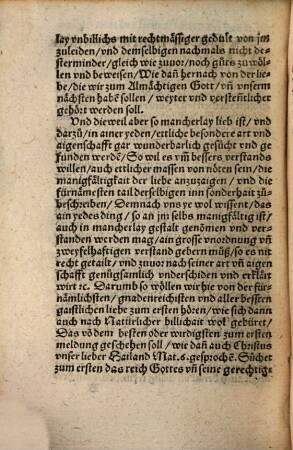 lay vnbillichs mit rechtmässiger gedult von jm
zuleiden/vnd demselbigen nachmals nicht de-
sterminder/gleich wie zuuor/noch gůts zu wöl-
len vnd beweisen/Wie dañ hernach von der lie-
be/die wir zum Allmächtigen Gott/vñ vnserm
nächsten habẽ sollen/weyter vnd verstentlicher
gehört werden soll.
Vnd die weil aber so mancherlay lieb ist/vnd
darzů/in ainer yeden/ettliche besondere art vnd
aigenschafft gar wunderbarlich gesůcht vnd ge
funden werdẽ/So wil es vm̃ bessers verstands
willen/auch ettlicher massen von nöten sein/die
manigfältigkait der liebe anzuzaigen/vnd die
fürnämesten tail derselbigen inn sonderhait zů
beschreiben/Demnach vns ye wol wissent/das
ain yedes ding/so an jm selbs manigfältig ist/
auch in mancherlay gestalt genom̃en vnd ver-
standen werden mag/ain grosse vnordnung vñ
zweyfelhafftigen verstand gebern můß/so es nit
recht getailt/vnd zuuor nach seiner art vñ aigen
schafft genůgsamlich vnderschiden vnd erklärt
wirt ꝛc. Darumb so wöllen wir hie von der für-
nämlichsten/gnadenreichisten vnd aller bessten
gaistlichen liebe zum ersten hören/wie sich dann
auch nach Natürlicher billichait wol gebüret/
Das võ dem besten oder wirdigsten zum ersten
meldung geschehen soll/wie dañ auch Christus
vnser lieber Hailand Mat.6.gesprochẽ. Sůchet
zum ersten das reich Gottes vñ seine gerechtig-